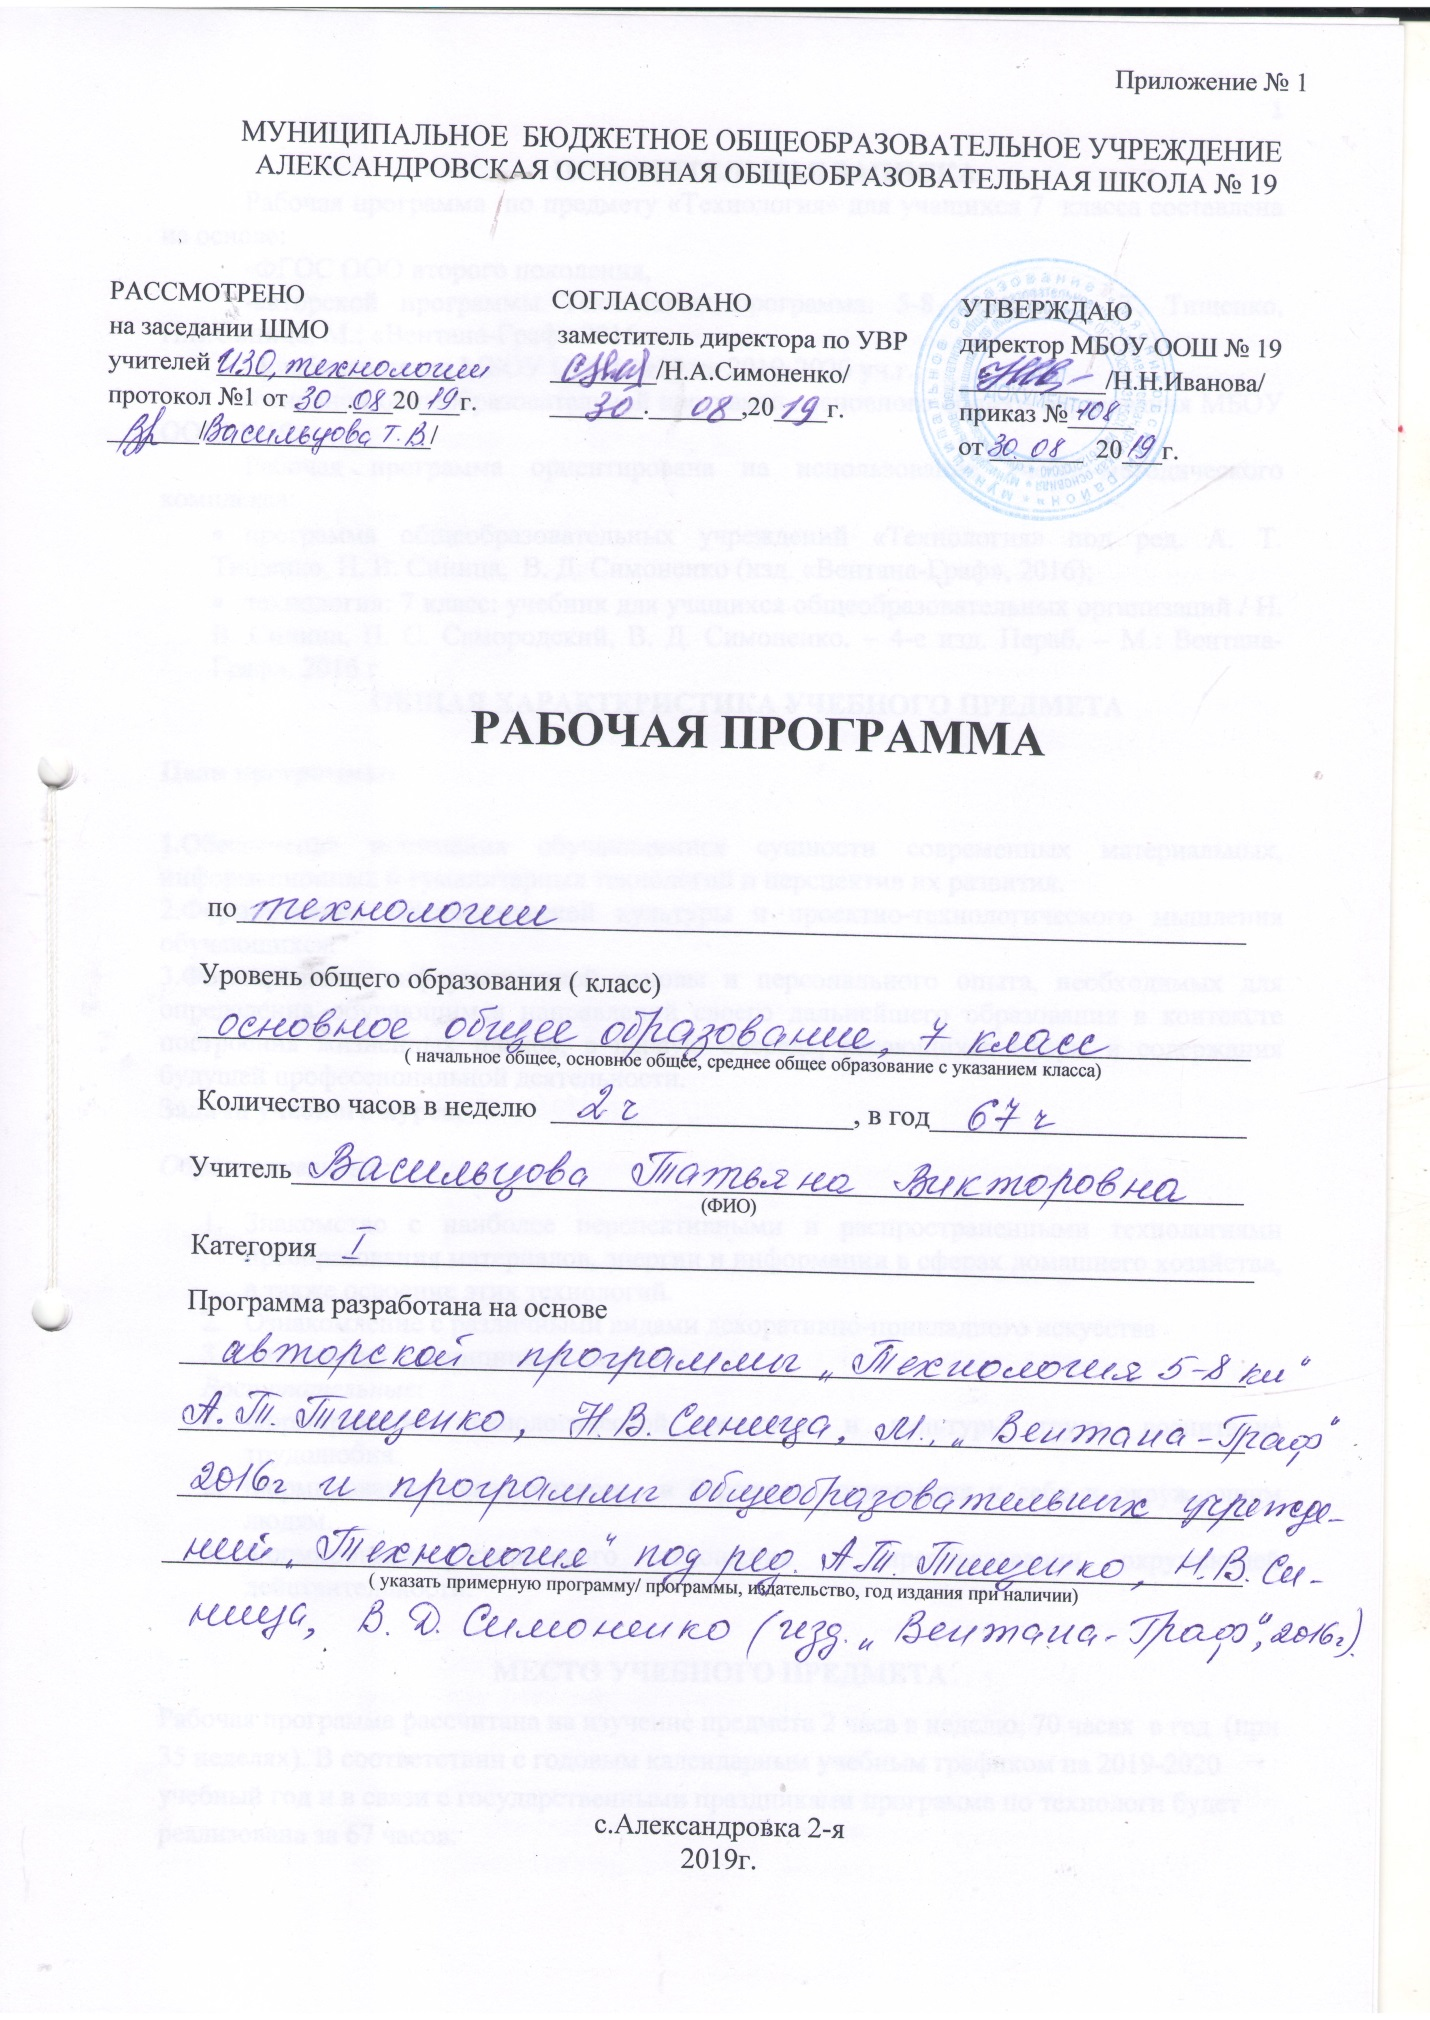 Приложение № 1
МУНИЦИПАЛЬНОЕ БЮДЖЕТНОЕ ОБЩЕОБРАЗОВАТЕЛЬНОЕ УЧРЕЖДЕНИЕ
АЛЕКСАНДРОВСКАЯ ОСНОВНАЯ ОБЩЕОБРАЗОВАТЕЛЬНАЯ ШКОЛА № 19
РАССМОТРЕНО
на заседании ШМО
учителей ИЗО, технологии
протокол №1 от 30.08 2019г.
/Васильцова Т.В./
СОГЛАСОВАНО
заместитель директора по УВР
/Н.А.Симоненко/
30.08,2019г.
УТВЕРЖДАЮ
директор МБОУ ООШ № 19
/Н.Н.Иванова/
приказ № 108
от 30.08 2019г.
РАБОЧАЯ ПРОГРАММА
по технологии
Уровень общего образования ( класс)
основное общее образование, 7 класс
( начальное общее, основное общее, среднее общее образование с указанием класса)
Количество часов в неделю 2 ч, в год 67 ч
Учитель Васильцова Татьяна Викторовна
(ФИО)
Категория I
Программа разработана на основе
авторской программы „Технология 5-8 кл“
А.Т. Тищенко, Н.В. Синица, М., „Вентана-Граф“
2016г и программы общеобразовательных учрежде-
ний „Технология“ под ред. А.Т. Тищенко, Н.В. Си-
( указать примерную программу/ программы, издательство, год издания при наличии)
ница, В.Д. Симоненко (изд. „Вентана-Граф“, 2016г).
с.Александровка 2-я
2019г.